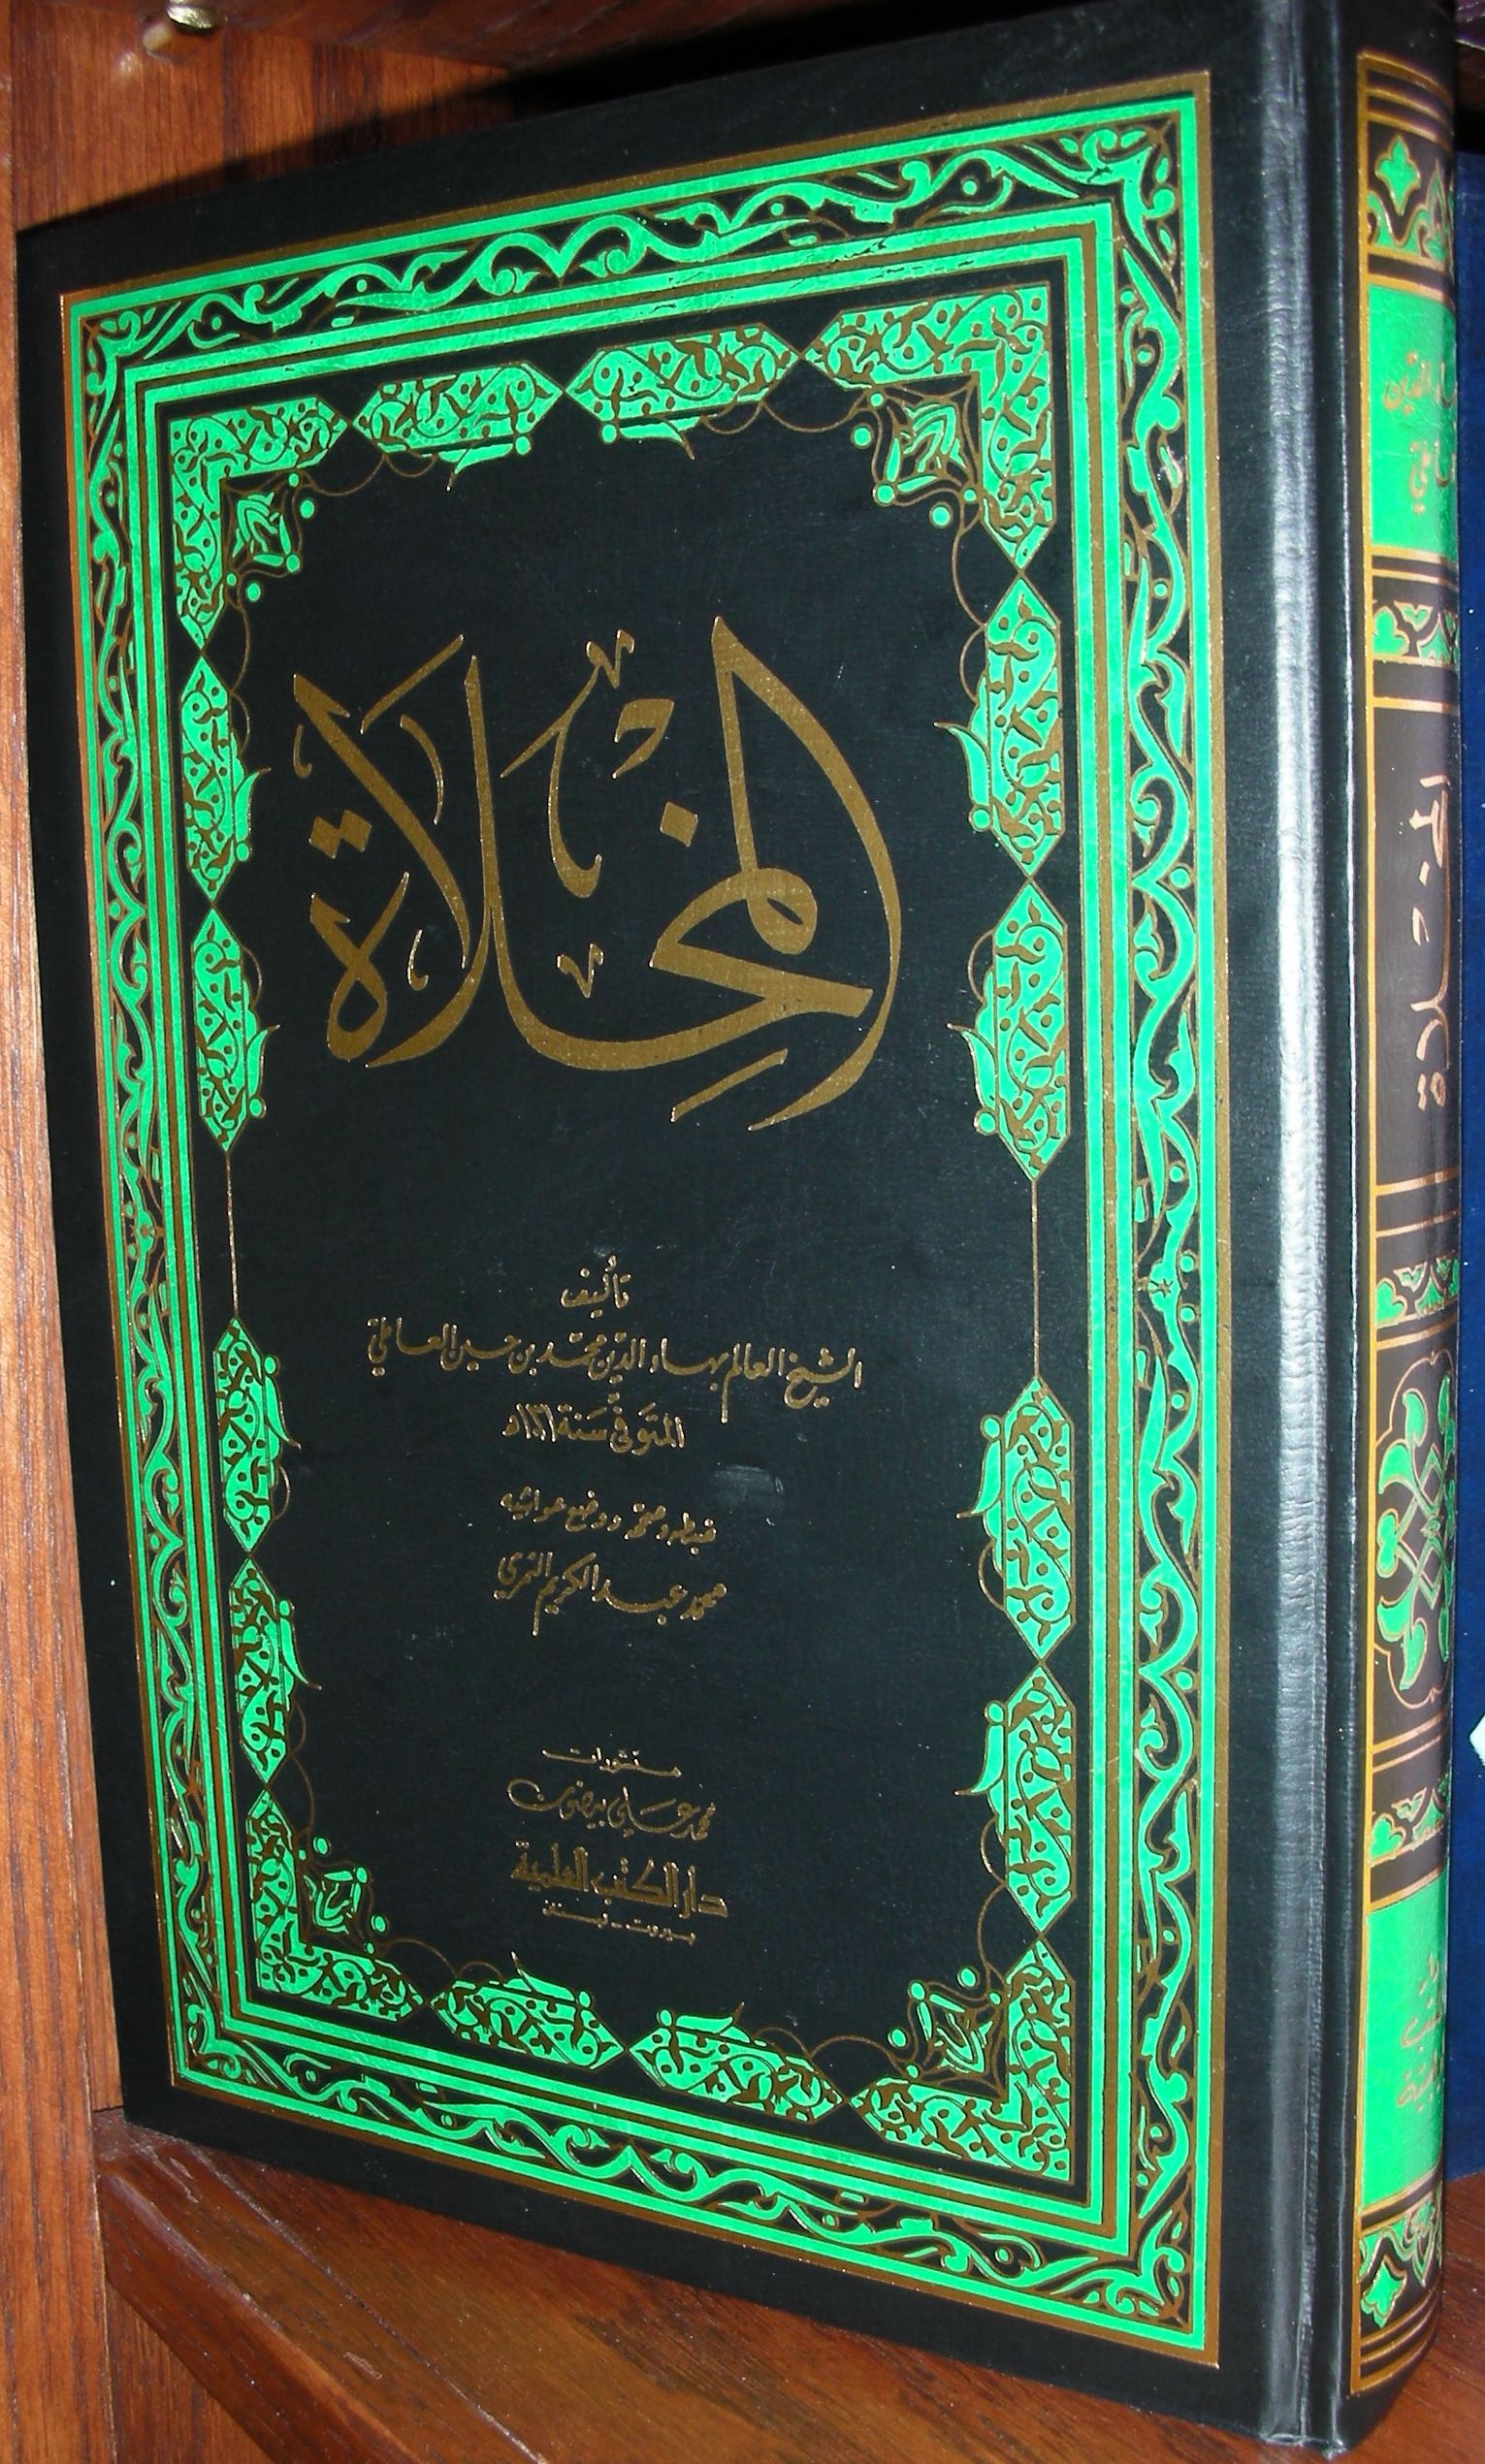 المِخْلَاة
تأليف
الشيخ العالم بهاء الدين محمّد بن حسين العاملي
المتوفّى سَنة ١٠٣١ه
ضبطه وصحّحه ووضع حواشيه
محمد عبد الكريم النمري
منشورات
محمد علي بيضون
دار الكتب العلمية
بيروت - لبنان
المخلاة